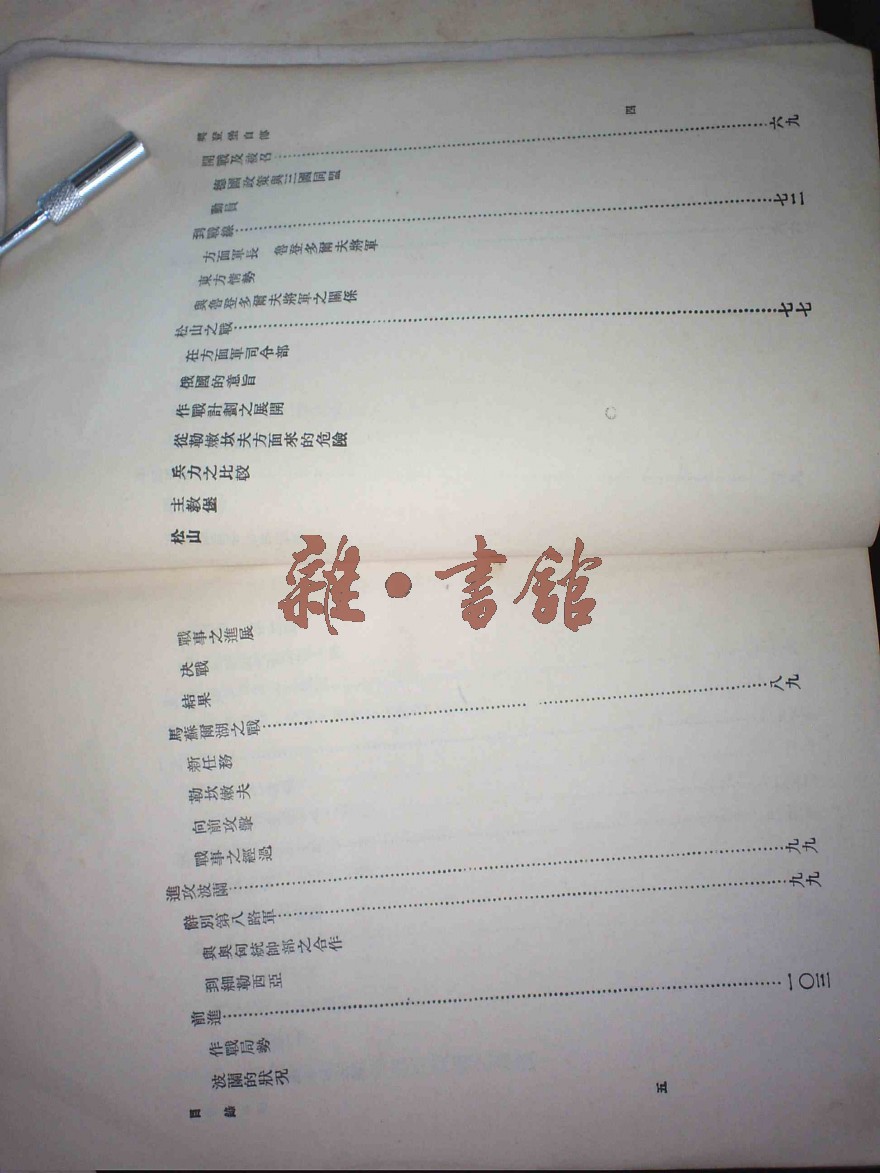 興登堡自傳 四
開戰及被召 六九
德國政策與三國同盟
動員
到戰線 七二
方面軍長 魯登多爾夫將軍
東方情勢
與魯登多爾夫將軍之關係
松山之戰 七七
在方面軍司令部
俄國的意旨
作戰計劃之展開
從勒嫩坎夫方面來的危險
兵力之比較
主教堡
松山
雜·書館
戰事之進展
決戰
結果
馬蘇爾湖之戰 八九
新任務
勒坎嫩夫
向前攻擊
戰事之經過
進攻波蘭 九九
辭別第八路軍 九九
與奧匈統帥部之合作
到細勒西亞
前進 一〇三
作戰局勢
波蘭的狀況
目錄 五